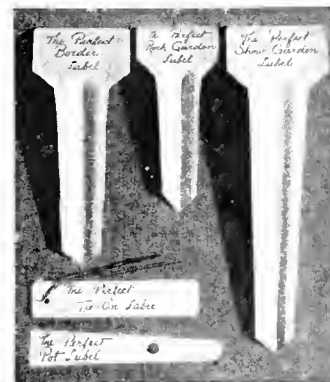 The Perfect
Border
Label
A Perfect
Rock Garden
Label
The Perfect
Show Garden
Label
The Perfect
Tie-On Label
The Perfect
Pot Label